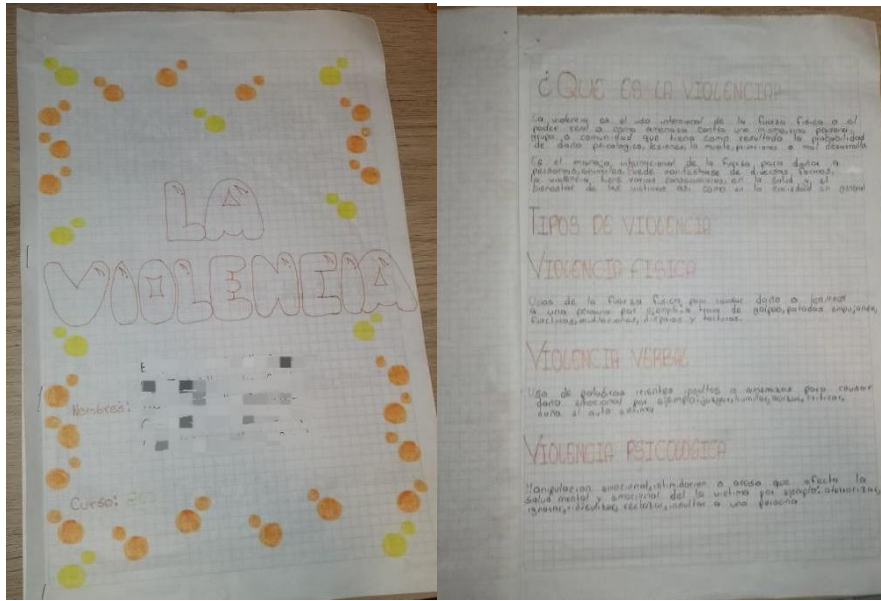 LA
VIOLENCIA
Nombres:
Curso:
¿QUE ES LA VIOLENCIA?
La violencia es el uso intencional de la fuerza física o el
poder real o como amenaza contra uno mismo, una persona,
grupo o comunidad que tiene como resultado la probabilidad
de daño psicologico, lesiones, la muerte, privaciones o mal desarrollo
Es el manejo intencional de la fuerza, para dañar a
personas, animales, puede manifestarse de diversas formas,
la violencia, tiene varias consecuencias, en la salud y el
bienestar de las victimas asi, como en la sociedad en general
TIPOS DE VIOLENCIA
VIOLENCIA FISICA
de la fuerza fisica para causar daño o lesiones
a una persona por ejemplo: de golpes, patadas, empujones,
fracturas, mutilaciones, disparos y torturas.
VIOLENCIA VERBAL
Uso de palabras insultos o amenazas para causar
daño emocional por ejemplo: humillar, criticar,
daña el auto estima
VIOLENCIA PSICOLOGICA
Manipulacion emocional, intimidacion o acoso que afecta la
salud mental y emocional del la victima por ejemplo: aterrorizar,
ignorar, ridiculizar, rechazar, insultar a una persona